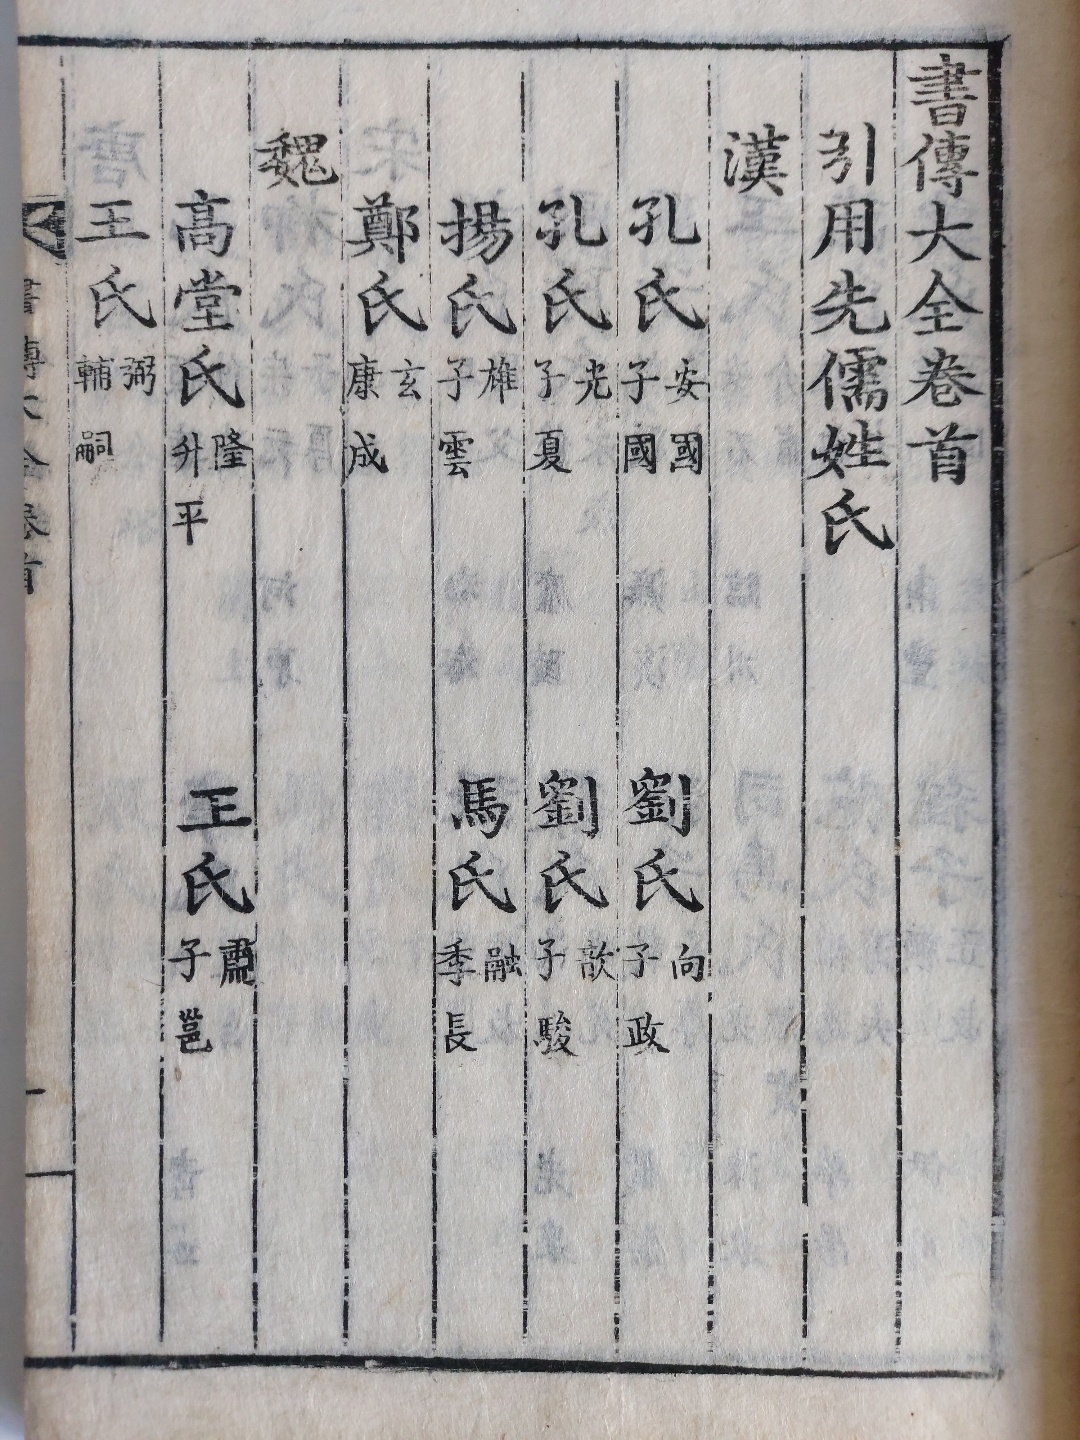 書傳大全卷首
引用先儒姓氏
漢
孔氏 安國 子國 劉氏 向 子政
孔氏 光 子夏 劉氏 歆 子駿
揚氏 雄 子雲 馬氏 融 季長
鄭氏 玄 康成
魏
高堂氏 隆 升平 王氏 肅 子邕
王氏 弼 輔嗣
書傳大全卷首 一